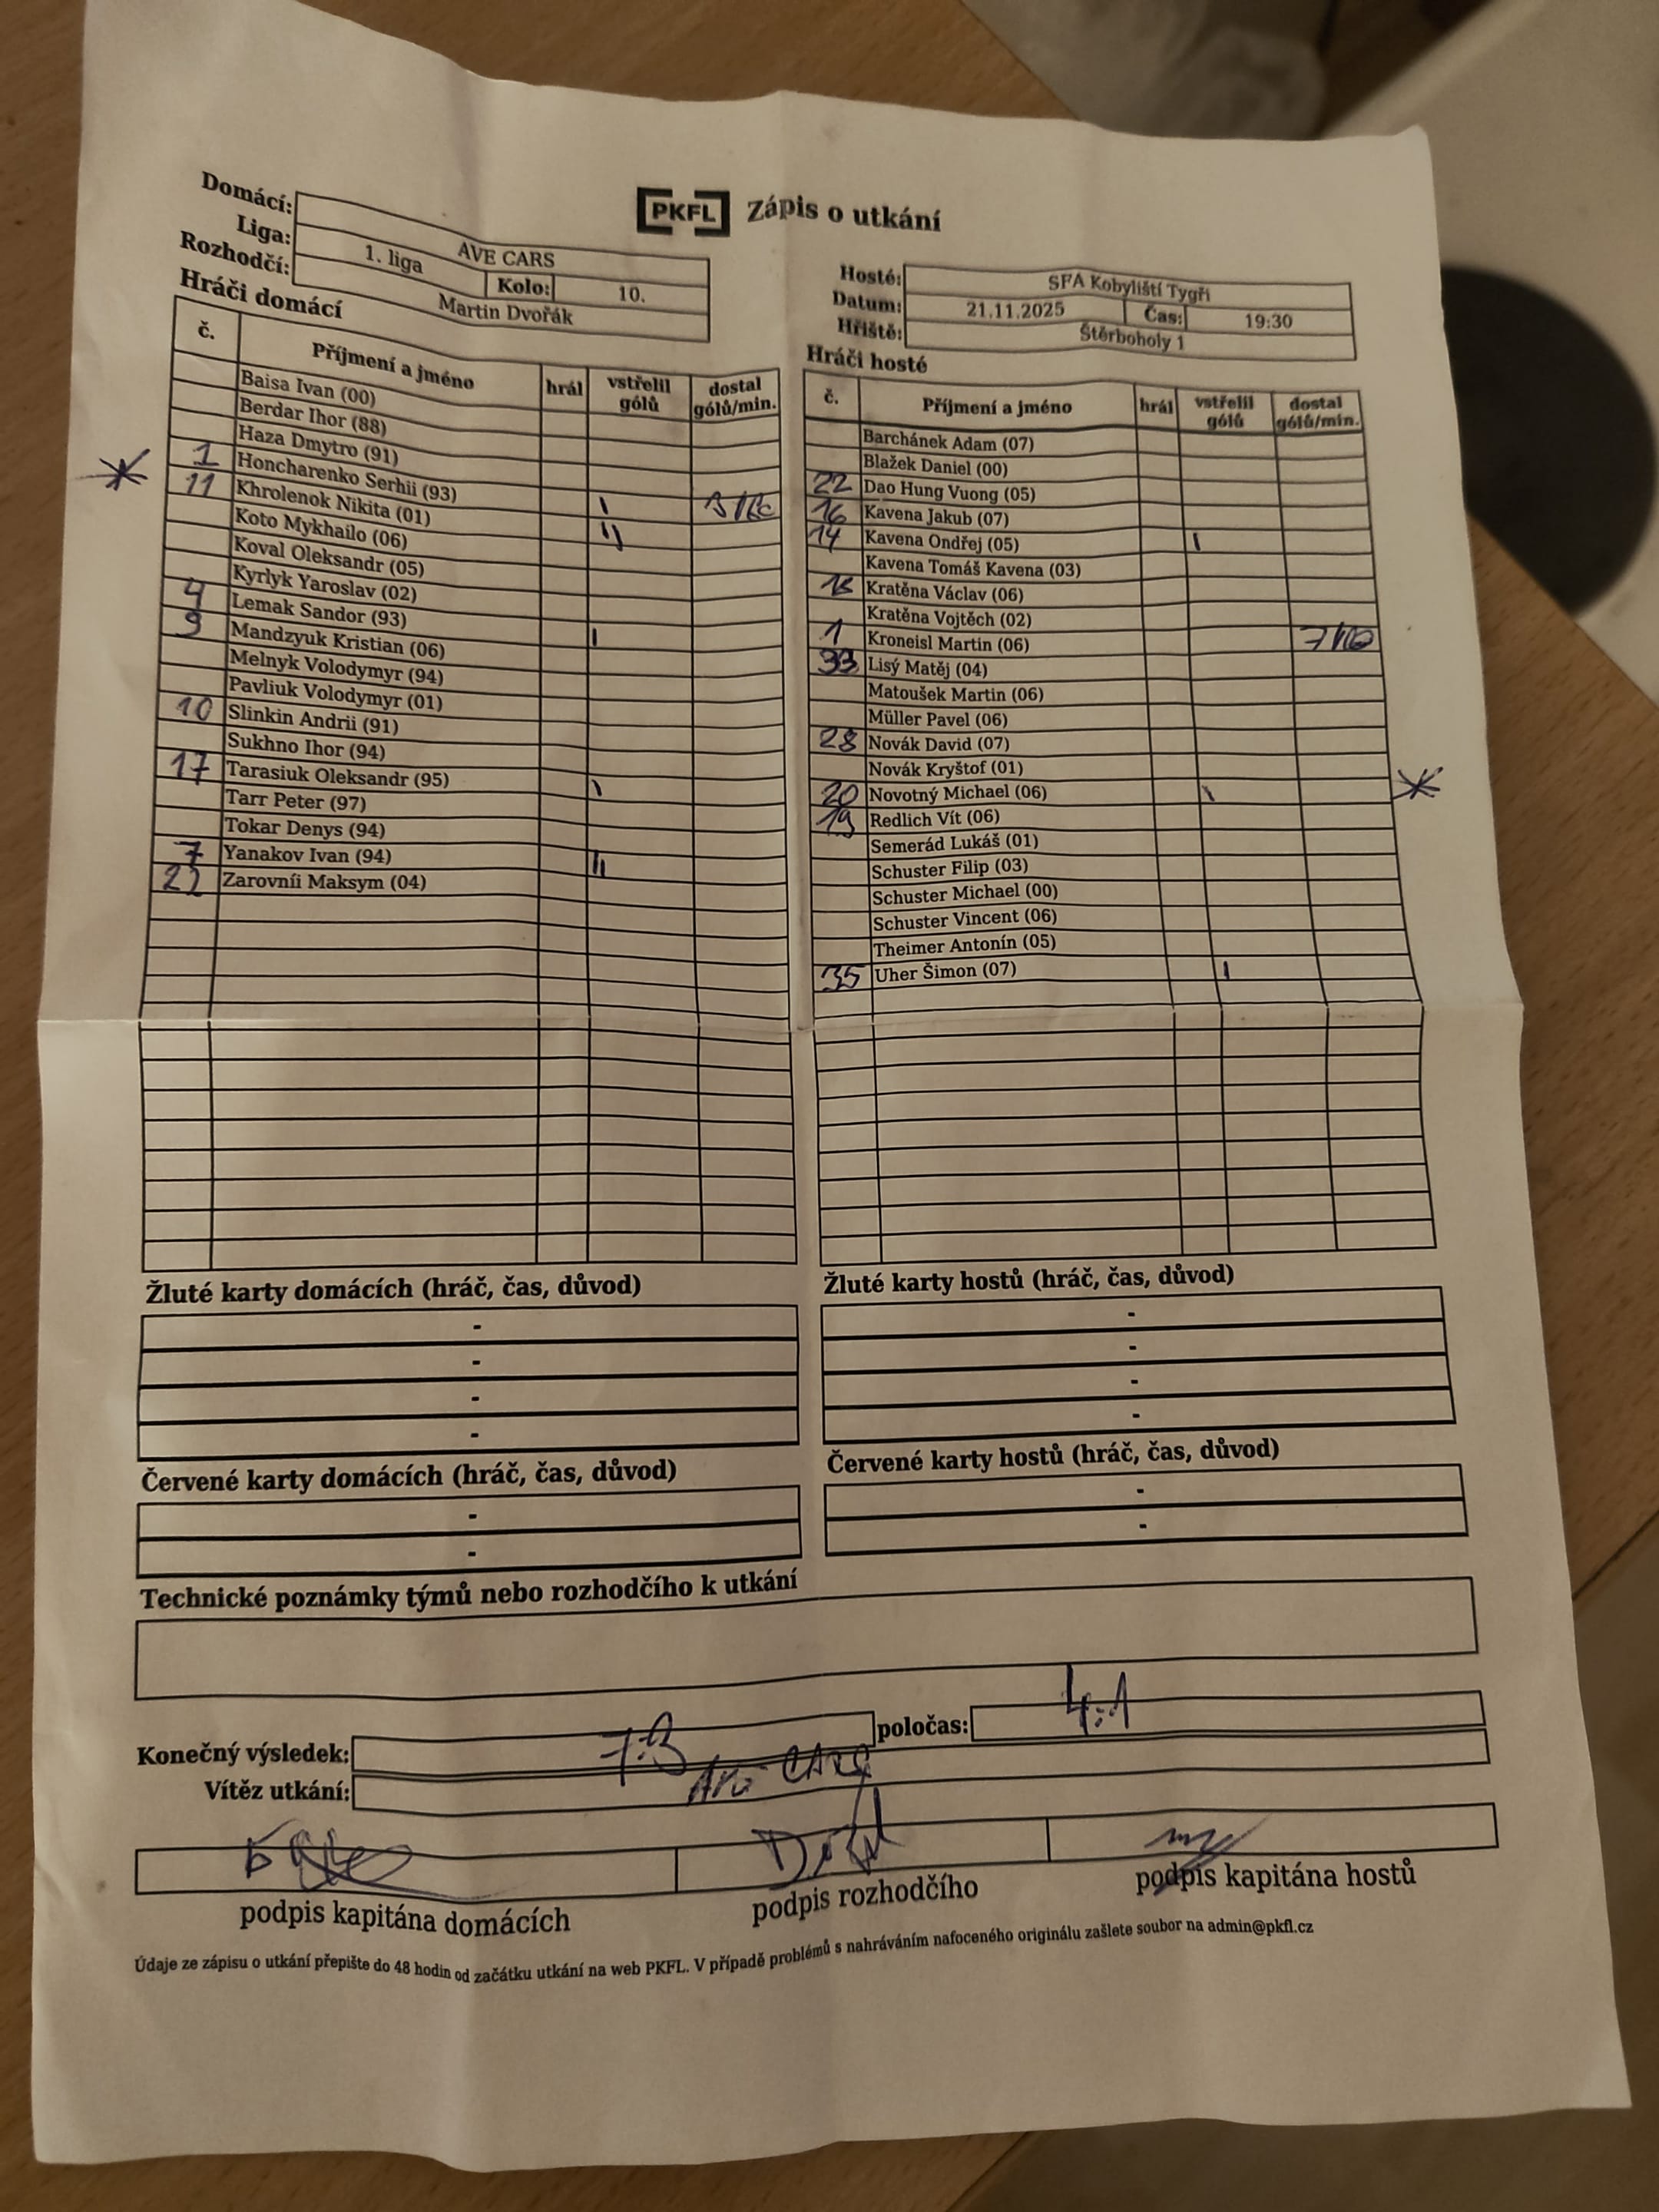 PKFL Zápis o utkání
Domácí: AVE CARS
Liga: 1. liga Kolo: 10.
Rozhodčí: Martin Dvořák
Hosté: SFA Kobyliští Tygři
Datum: 21.11.2025 Čas: 19:30
Hřiště: Štěrboholy 1
Hráči domácí
č. Příjmení a jméno hrál vstřelil gólů dostal gólů/min.
Baisa Ivan (00)
Berdar Ihor (88)
Haza Dmytro (91)
1 Honcharenko Serhii (93)
11 Khrolenok Nikita (01)
Koto Mykhailo (06)
Koval Oleksandr (05)
Kyrlyk Yaroslav (02)
4 Lemak Sandor (93)
9 Mandzyuk Kristian (06)
Melnyk Volodymyr (94)
Pavliuk Volodymyr (01)
10 Slinkin Andrii (91)
Sukhno Ihor (94)
17 Tarasiuk Oleksandr (95)
Tarr Peter (97)
Tokar Denys (94)
7 Yanakov Ivan (94)
22 Zarovnii Maksym (04)
Hráči hosté
č. Příjmení a jméno hrál vstřelil gólů dostal gólů/min.
Barchánek Adam (07)
Blažek Daniel (00)
22 Dao Hung Vuong (05)
16 Kavena Jakub (07)
14 Kavena Ondřej (05)
Kavena Tomáš Kavena (03)
Kratěna Václav (06)
Kratěna Vojtěch (02)
1 Kroneisl Martin (06)
33 Lisý Matěj (04)
Matoušek Martin (06)
Müller Pavel (06)
28 Novák David (07)
Novák Kryštof (01)
20 Novotný Michael (06)
19 Redlich Vít (06)
Semerád Lukáš (01)
Schuster Filip (03)
Schuster Michael (00)
Schuster Vincent (06)
Theimer Antonín (05)
35 Uher Šimon (07)
Žluté karty domácích (hráč, čas, důvod)
-
-
-
-
Žluté karty hostů (hráč, čas, důvod)
-
-
-
-
Červené karty domácích (hráč, čas, důvod)
-
-
Červené karty hostů (hráč, čas, důvod)
-
-
Technické poznámky týmů nebo rozhodčího k utkání
Konečný výsledek: 7:3 poločas: 4:1
Vítěz utkání:
podpis kapitána domácích podpis rozhodčího podpis kapitána hostů
Údaje ze zápisu o utkání přepište do 48 hodin od začátku utkání na web PKFL. V případě problémů s nahráváním nafoceného originálu zašlete soubor na admin@pkfl.cz